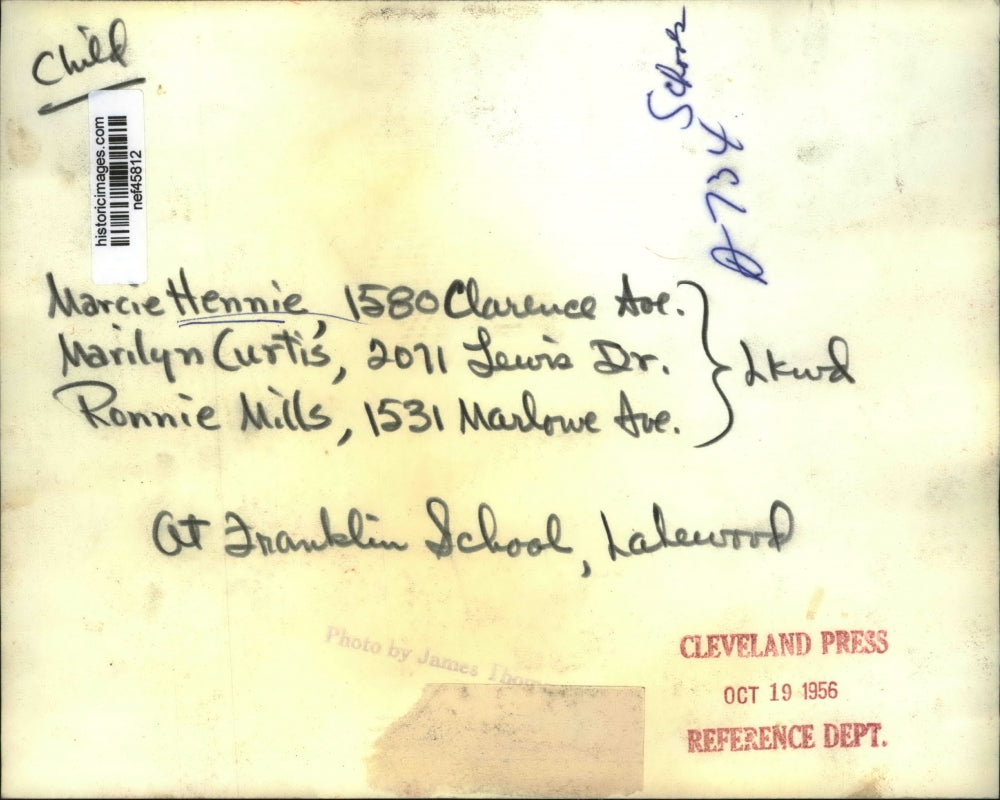 Child
Schools
A-734
historicimages.com
nef45812
Marcie Hennie, 1580 Clarence Ave.
Marilyn Curtis, 2071 Lewis Dr.
Ronnie Mills, 1531 Marlowe Ave.
Lkwd
At Franklin School, Lakewood
Photo by James
CLEVELAND PRESS
OCT 19 1956
REFERENCE DEPT.